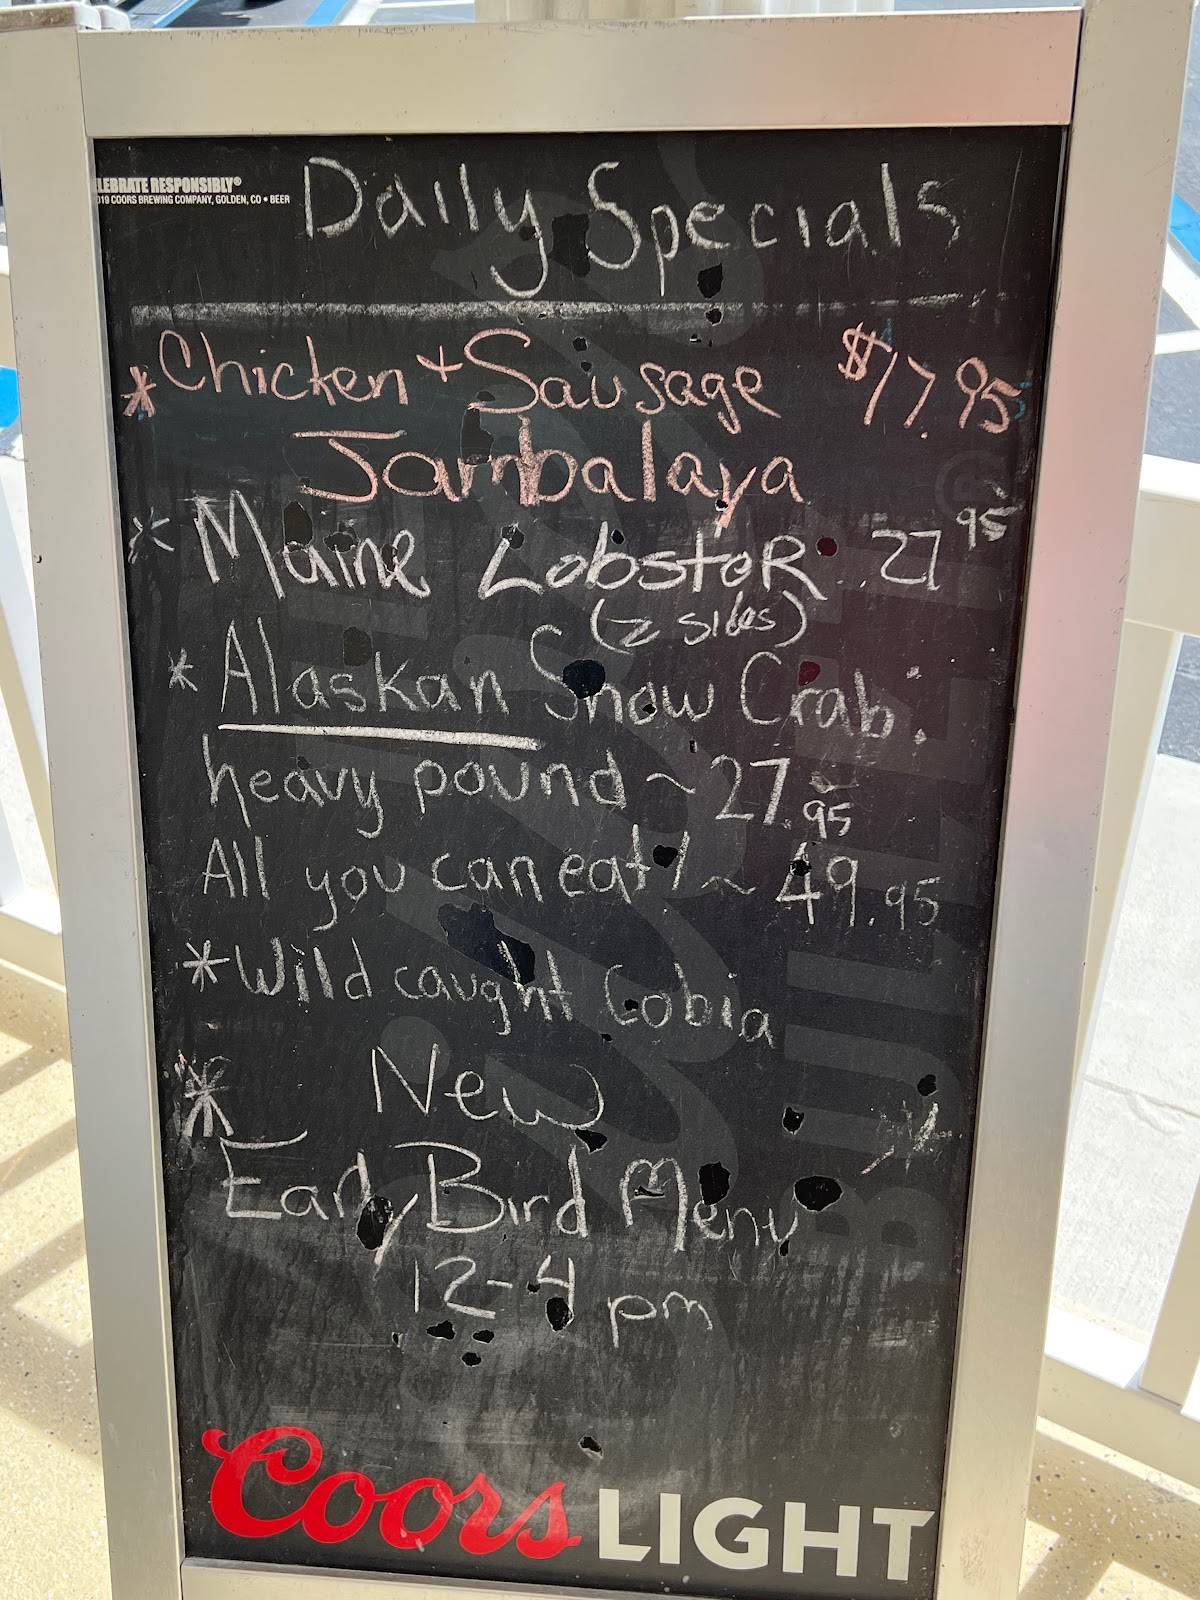 LEBRATE RESPONSIBLY®
019 COORS BREWING COMPANY, GOLDEN, CO • BEER
Daily Specials
* Chicken + Sausage $17.95
Jambalaya
* Maine Lobster 27 95
(2 sides)
* Alaskan Snow Crab:
heavy pound ~ 27.95
All you can eat! ~ 49.95
* Wild caught Cobia
* New
Early Bird Menu
12-4 pm
Coors LIGHT